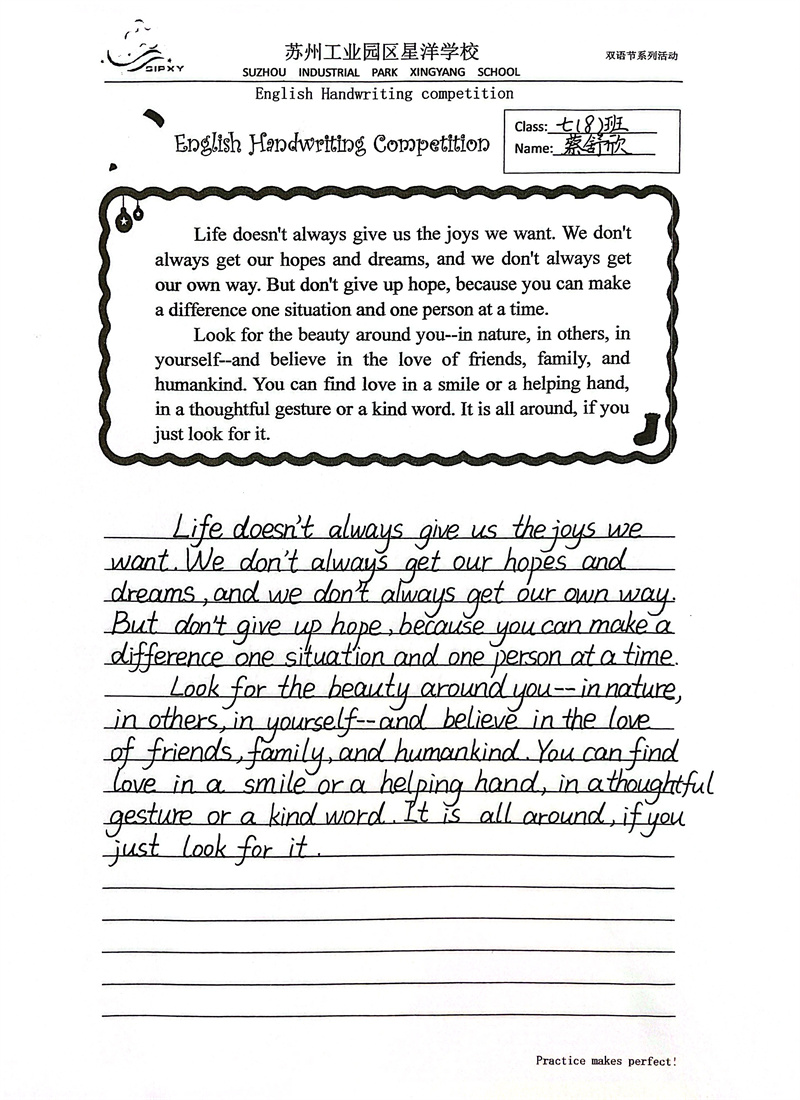 SIPXY
苏州工业园区星洋学校
双语节系列活动
SUZHOU INDUSTRIAL PARK XINGYANG SCHOOL
English Handwriting competition
English Handwriting Competition
Class: 七(8)班
Name: 蔡舒欣
Life doesn't always give us the joys we want. We don't
always get our hopes and dreams, and we don't always get
our own way. But don't give up hope, because you can make
a difference one situation and one person at a time.
Look for the beauty around you--in nature, in others, in
yourself--and believe in the love of friends, family, and
humankind. You can find love in a smile or a helping hand,
in a thoughtful gesture or a kind word. It is all around, if you
just look for it.
Life doesn't always give us the joys we
want. We don't always get our hopes and
dreams, and we don't always get our own way.
But don't give up hope, because you can make a
difference one situation and one person at a time.
Look for the beauty around you--in nature,
in others, in yourself--and believe in the love
of friends, family, and humankind. You can find
love in a smile or a helping hand, in a thoughtful
gesture or a kind word. It is all around, if you
just look for it.
Practice makes perfect!